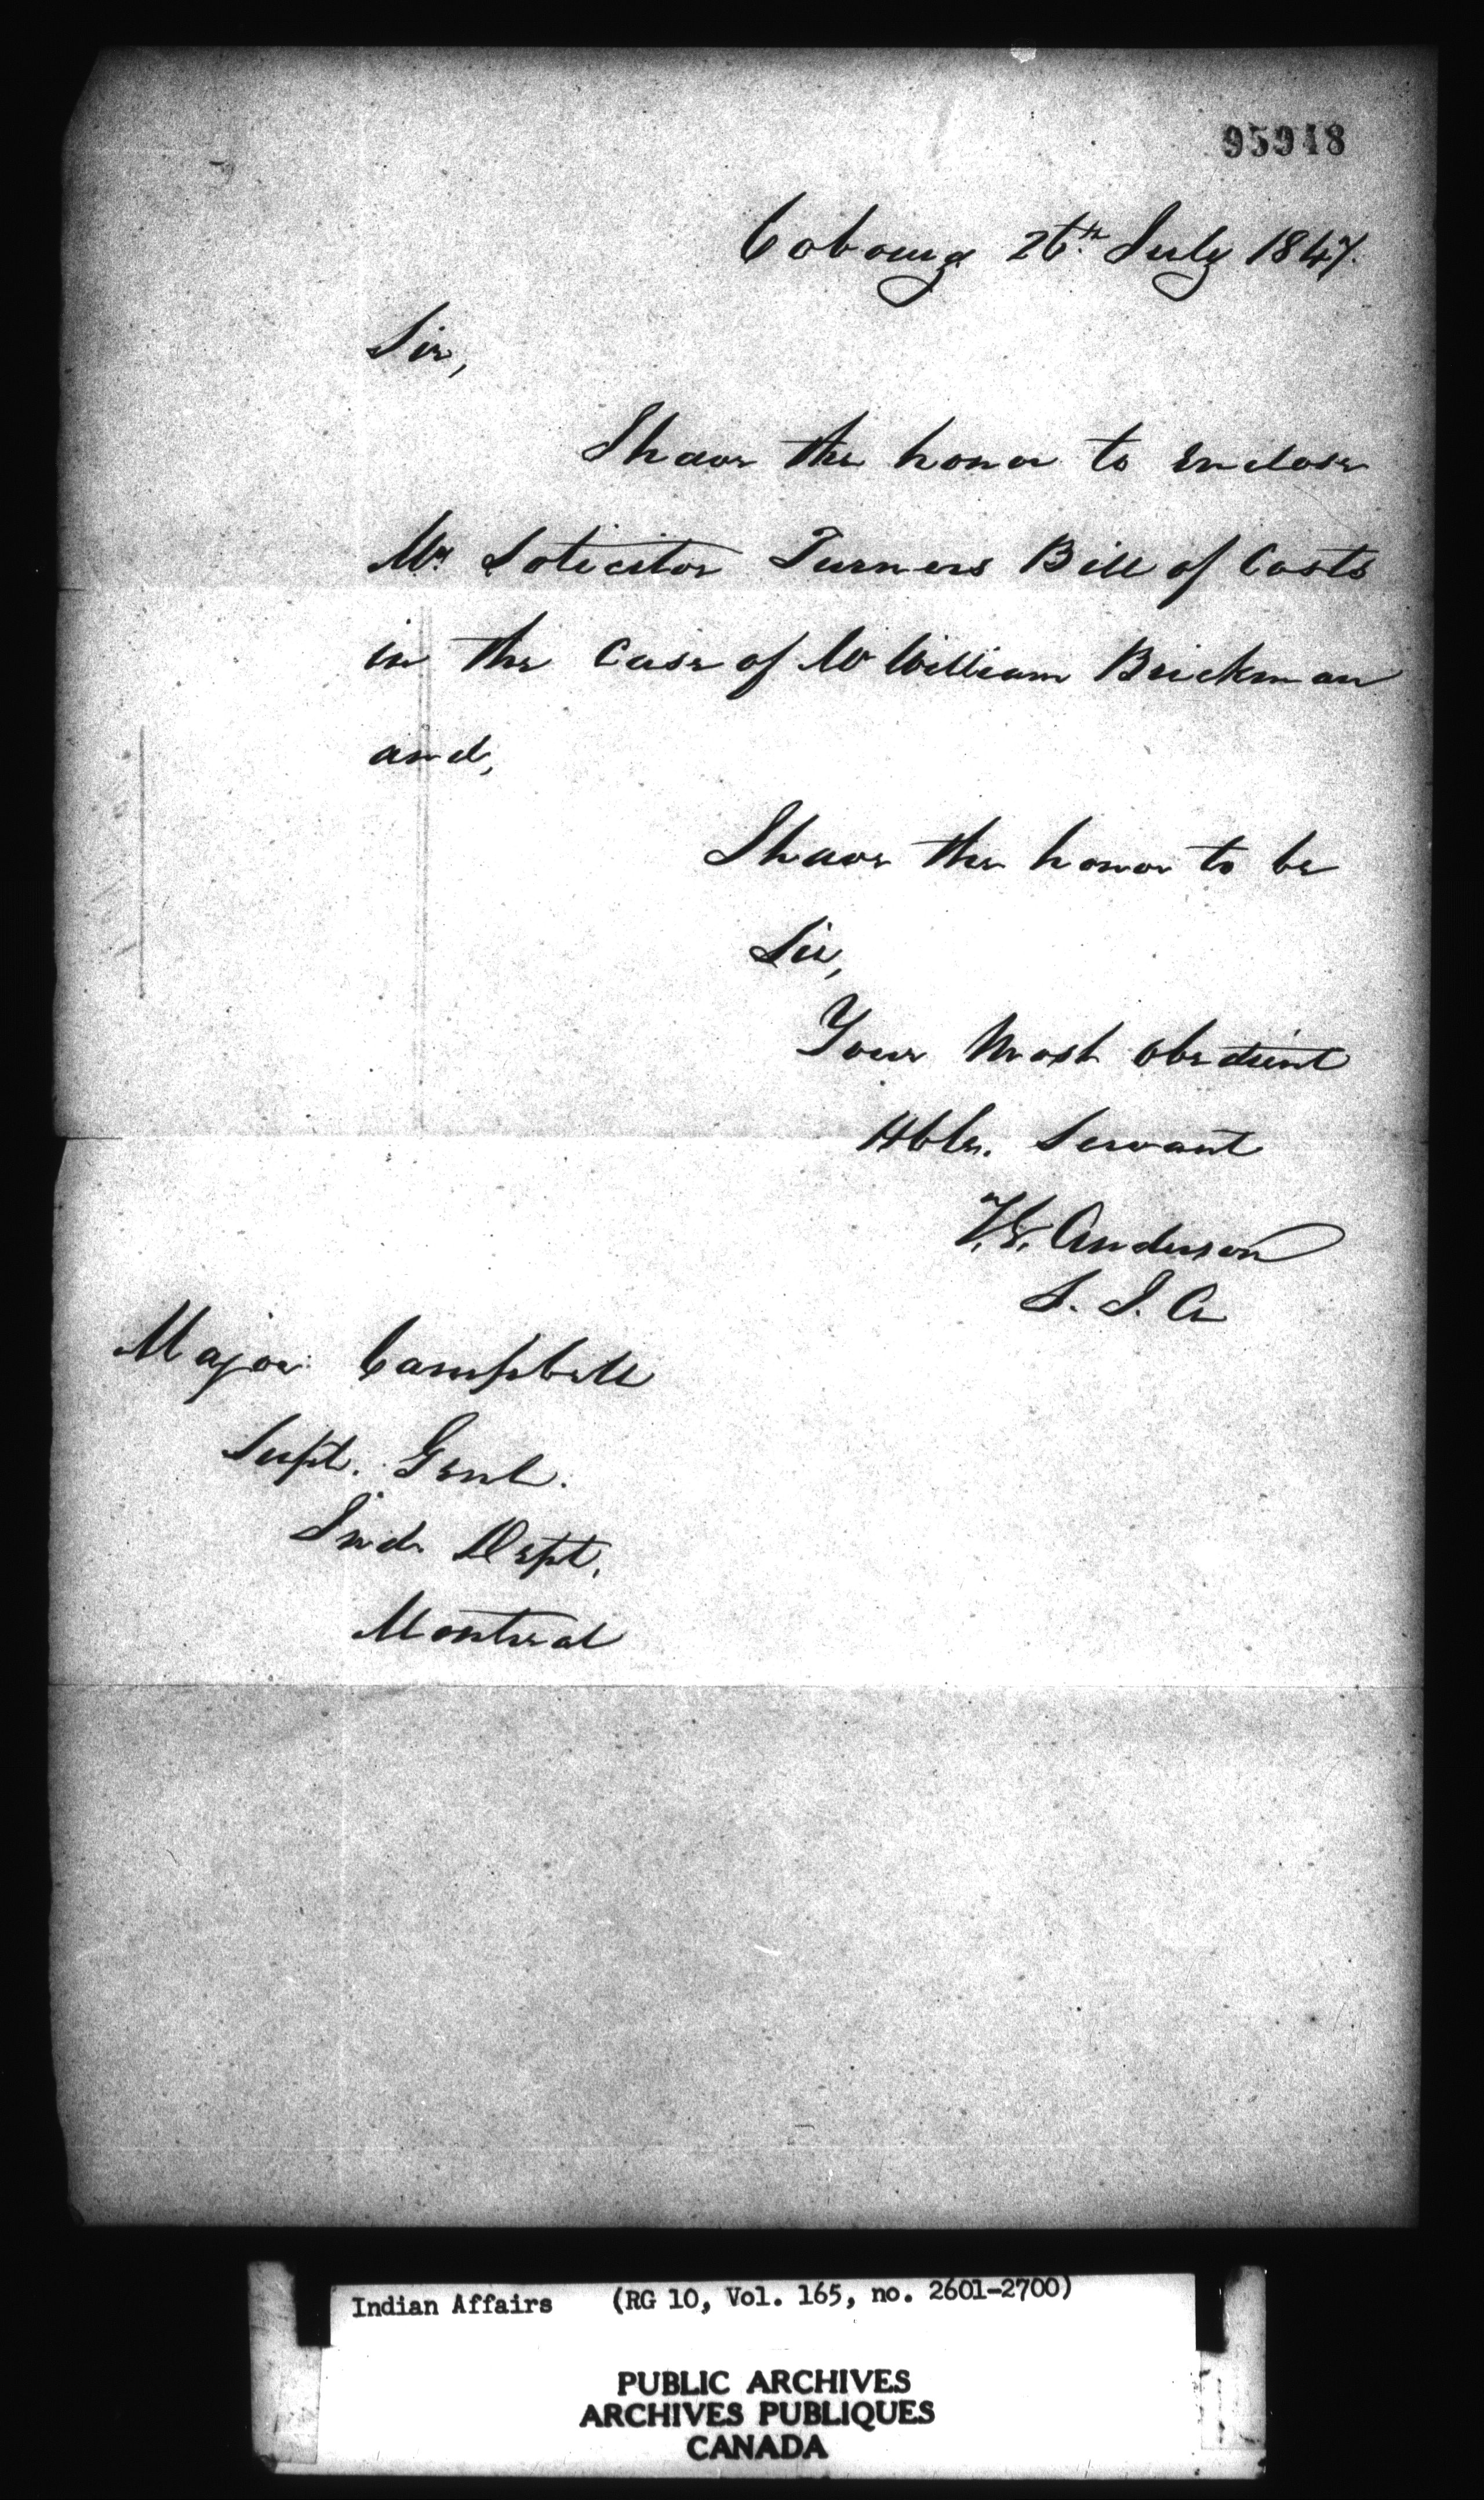 95948
Cobourg 26th July 1847.
Sir,
I have the honor to enclose
Mr Solicitor Turners Bill of Costs
in the Case of Mr William Brickman
and,
I have the honor to be
Sir,
Your Most Obedient
Hble. Servant
T.G. Anderson
S. I. A
Major Campbell
Supt. Genl.
Ind. Dept.
Montreal
Indian Affairs (RG 10, Vol. 165, no. 2601-2700)
PUBLIC ARCHIVES
ARCHIVES PUBLIQUES
CANADA